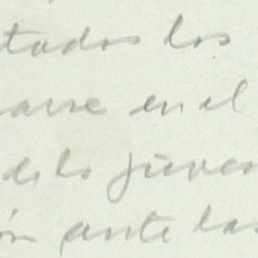 tados los
arse en el
de la juven
ón ante las